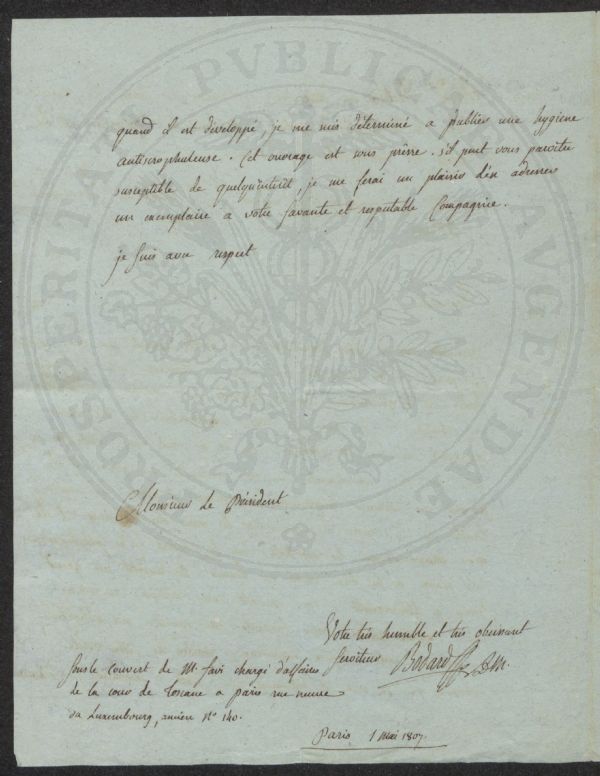 PROSPERITATI PVBLICAE AVGENDAE
quand il est developpé, je me suis determiné a publier une hygiene
antiscrophuleuse. Cet ouvrage est sous presse. s'il peut vous paroitre
susceptible de quelqu'interêt, je me ferai un plaisir d'en adresser
un exemplaire a votre savante et respectable Compagnie.
je suis avec respect
Monsieur le Président
Votre très humble et très obeissant
serviteur Bodard D.M.
sous le couvert de Mr. favi chargé d'affaires
de la cour de Toscane a paris rue neuve
du Luxembourg, ancien No 140.
Paris 1 Mai 1807.